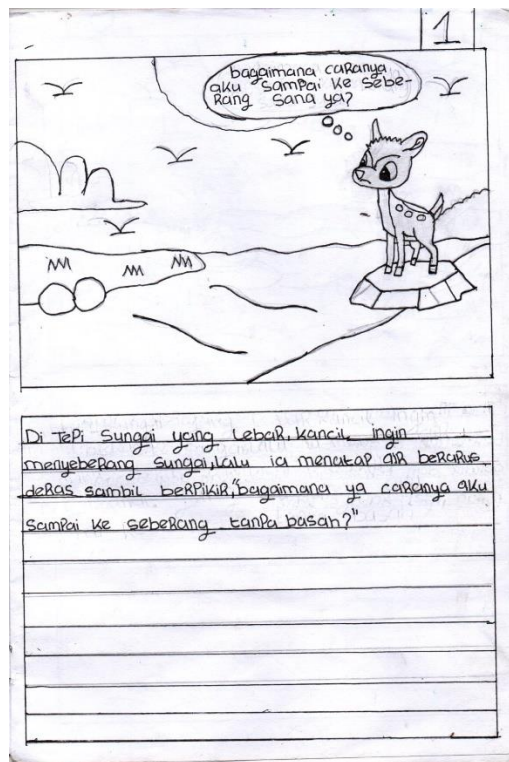 1
bagaimana caRanya
aku SamPai Ke Sebe-
Rang Sana ya?
Di TePi Sungai yang LebaR, Kancil ingin
menyebeRang Sungai, Lalu ia menatap aiR beRaRus
deRas sambil beRPikiR, "bagaimana ya caRanya aku
SamPai Ke SebeRang tanPa basah?"